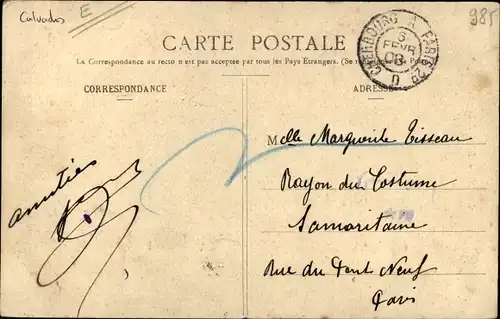 Calvados
E
985
CHERBOURG A PARIS
6
FEVR
08
D
CARTE POSTALE
La Correspondance au recto n'est pas acceptée par tous les Pays Etrangers. (Se
CORRESPONDANCE
ADRESSE
Melle Marguerite Tisseau
Rayon du Costume
Samaritaine
Rue du Pont Neuf
Paris
amitiés